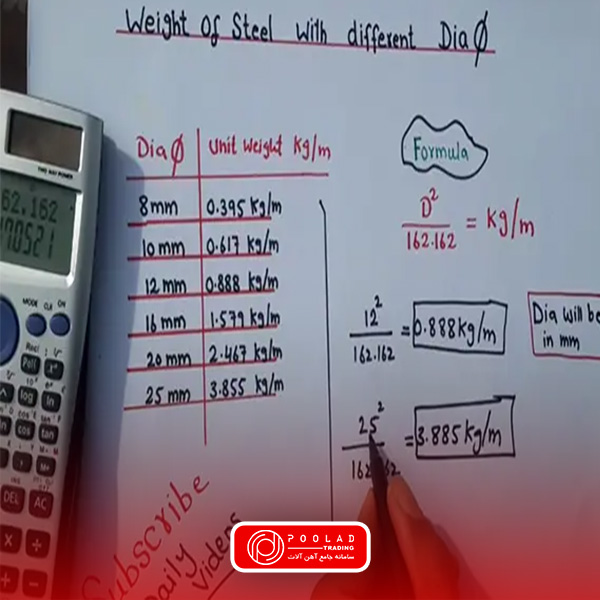 Weight Of Steel With different Dia Ø
Dia Ø Unit weight Kg/m
8mm 0.395 Kg/m
10 mm 0.617 Kg/m
12 mm 0.888 Kg/m
16 mm 1.579 Kg/m
20 mm 2.467 Kg/m
25 mm 3.855 Kg/m
Formula
D² / 162.162 = Kg/m
12² / 162.162 = 0.888 Kg/m
Dia will be
in mm
25² / 162.162 = 3.885 Kg/m
Subscribe
Daily
Videos
TWO WAY POWER
62.162
MODE CLR ON
log ln
cos tan
DEL AC
× ÷
+ −
POOLAD
TRADING
سامانه جامع آهن آلات